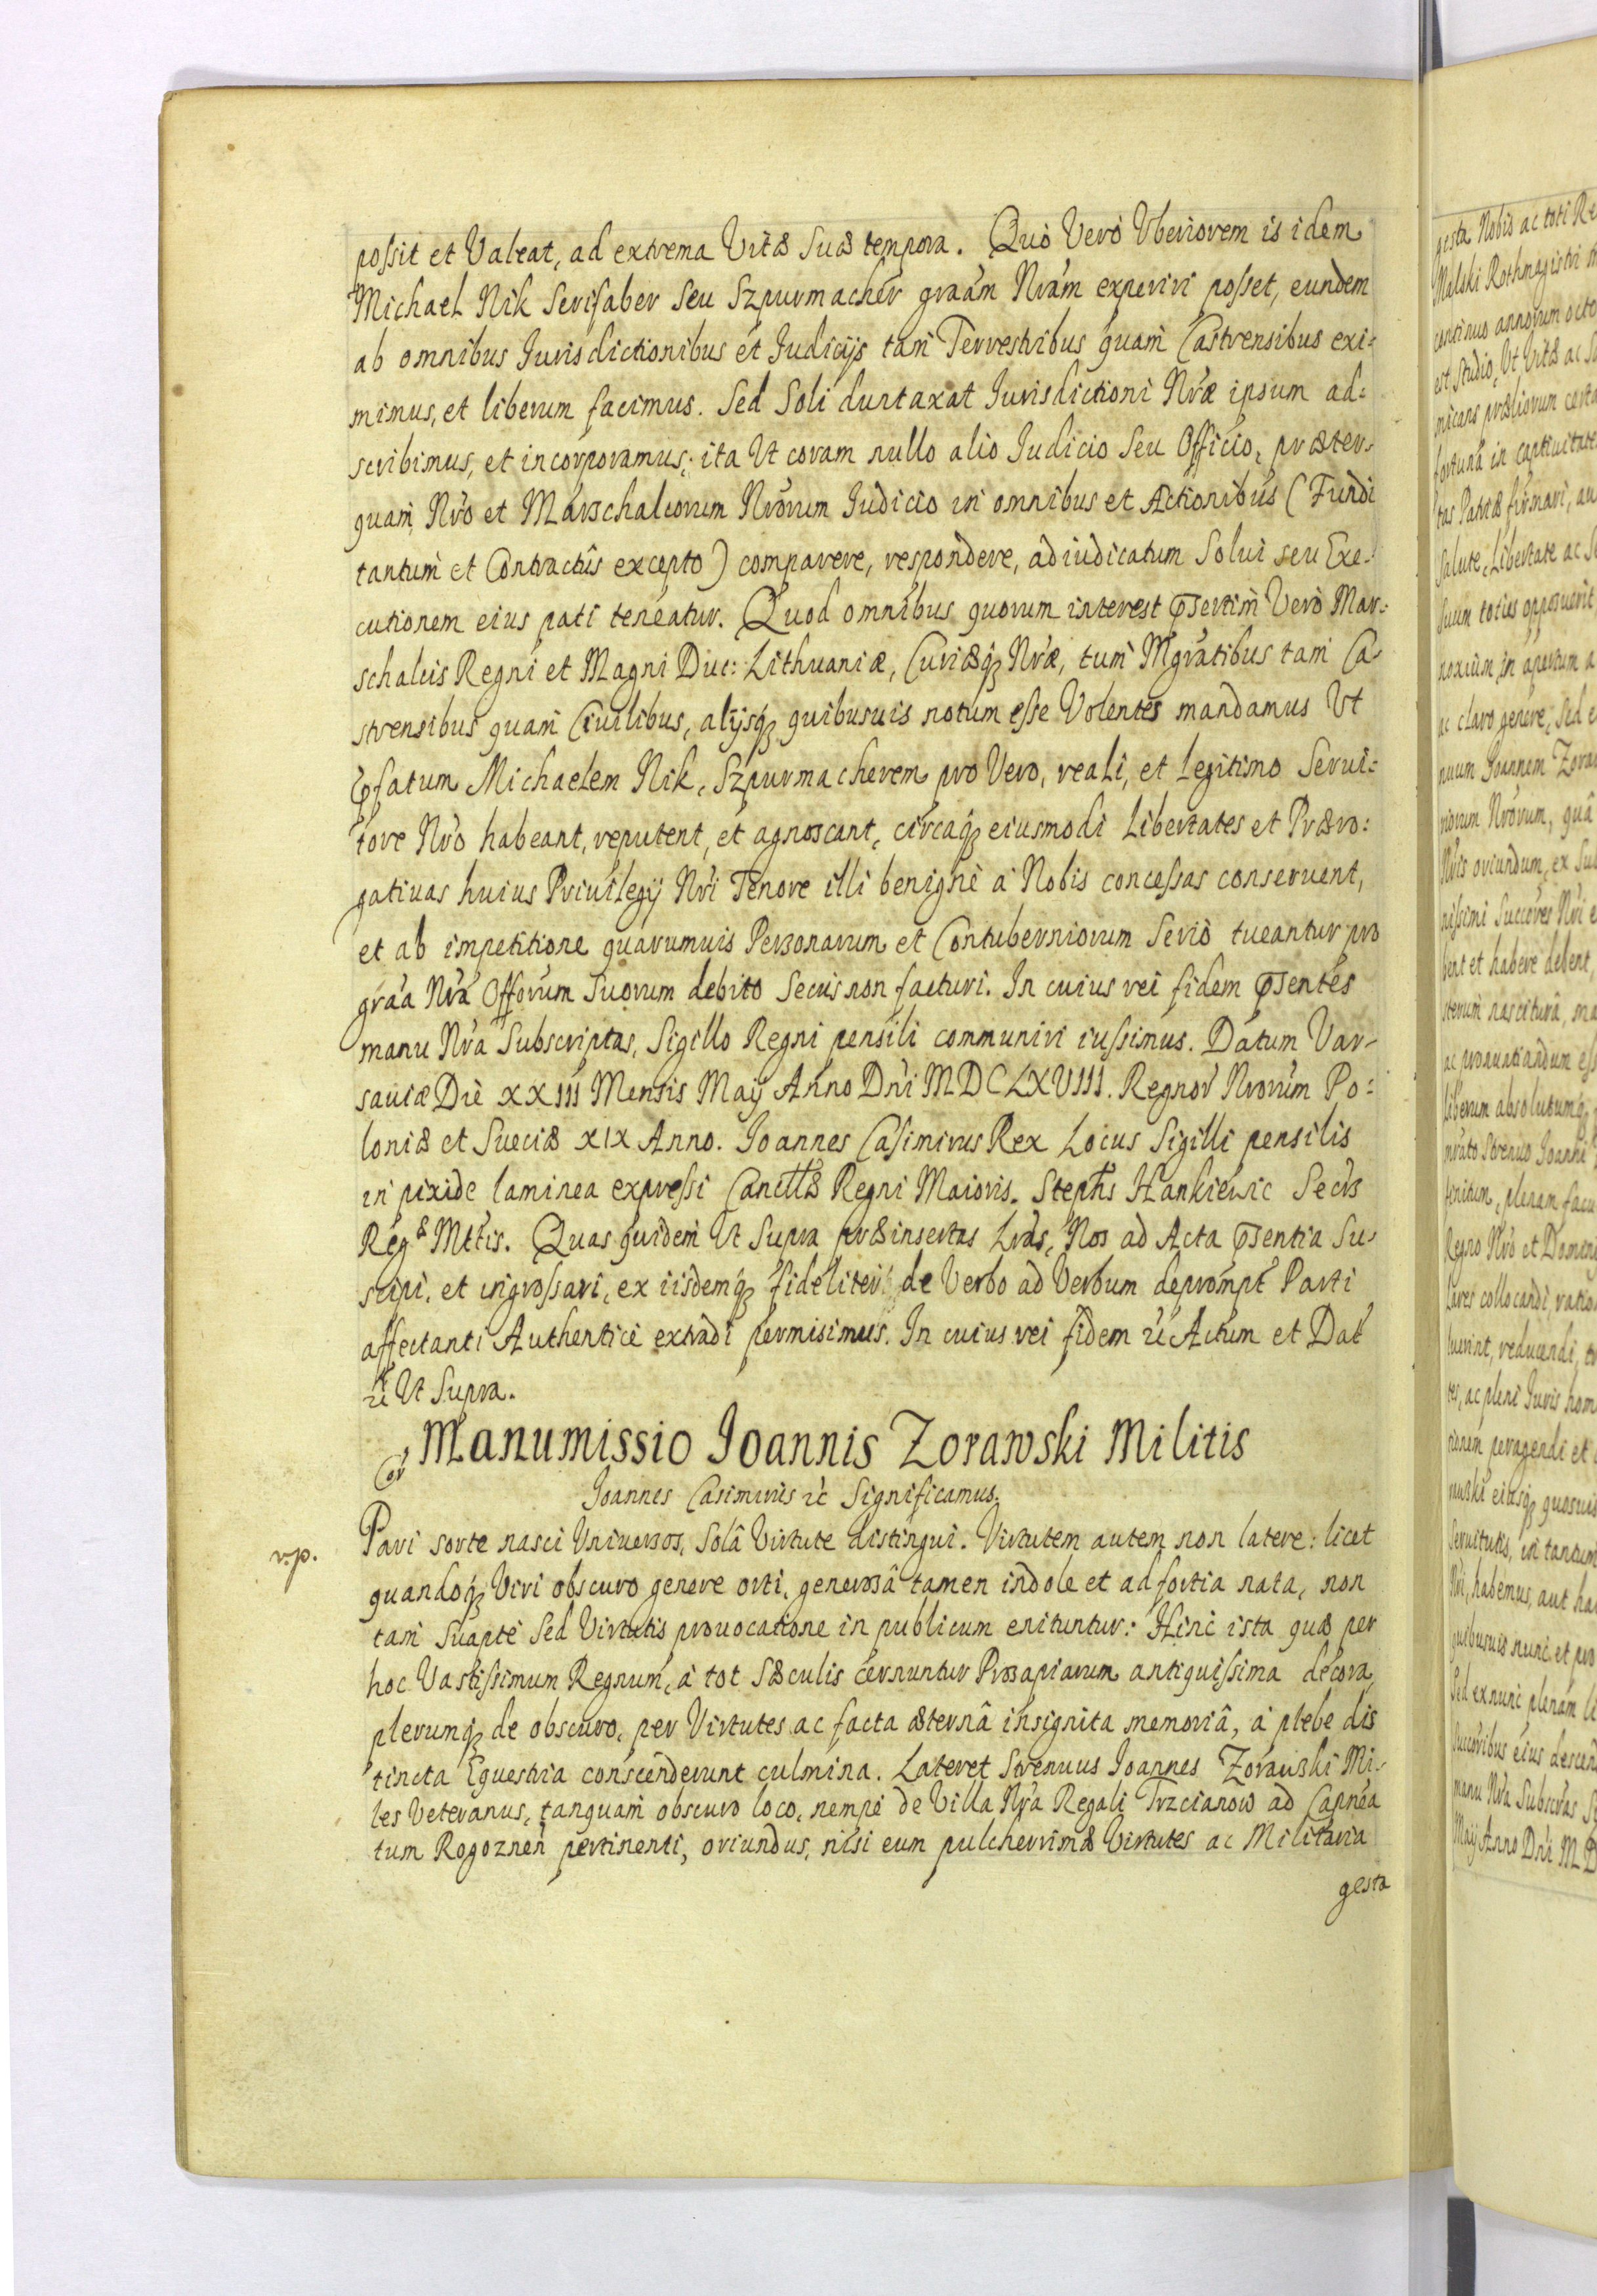 possit et Valeat, ad extrema Vitæ Suæ tempora. Quò Verò Vberiorem is idem
Michael Nik Serifaber Seu Szpurmacher graãm Nrãm experiri posset, eundem
ab omnibus Iurisdictionibus et Iudicijs tam Terrestribus quam Castrensibus exi-
mimus, et liberum facimus. Sed Soli duntaxat Iurisdictioni Nræ ipsum ad-
scribimus, et incorporamus; ita Vt coram nullo alio Iudicio Seu Officio, præter-
quam, Nro et Marschalcorum Nrorum Iudicio in omnibus et Actionibus (Fundi
tantum et Contractûs excepto) comparere, respondere, adiudicatum Solui seu Exe-
cutionem eius pati teneatur. Quod omnibus quorum interest Psertim Verò Mar-
schalcis Regni et Magni Duc: Lithuaniæ, Curiæq; Nræ, tum Mgratibus tam Ca-
strensibus quam Ciuilibus, alijsq; quibusuis notum esse Volentes mandamus Vt
Pfatum Michaelem Nik, Szpurmacherem pro Vero, reali, et Legitimo Serui-
tore Nro habeant, reputent, et agnoscant, circaq; eiusmodi Libertates et Præro:
gatiuas huius Priuilegij Nri Tenore illi benignè à Nobis concessas conseruent,
et ab impetitione quarumuis Personarum et Contuberniorum Seriò tueantur pro
graã Nrã Offorum Suorum debito Secus non facturi. In cuius rei fidem Psentes
manu Nrã Subscriptas, Sigillo Regni pensili communiri iussimus. Datum Var-
sauiæ Die XXIII Mensis Maij Anno Dni MDCLXVIII. Regnor Nrorum Po:
loniæ et Sueciæ XIX Anno. Ioannes Casimirus Rex Locus Sigilli pensilis
in pixide laminea expressi Cancllæ Regni Maioris. Stephs Hankiewic Secrs
Regæ Mttis. Quas quidem Vt Supra præinsertas Lras, Nos ad Acta Psentia Su-
scipi, et ingrossari, ex iisdemq; fideliter de Verbo ad Verbum deprompt Parti
affectanti Authentice extradi permisimus. In cuius rei fidem &c Actum et Dat
&c Vt Supra.
Cor Manumissio Ioannis Zorawski Militis
Ioannes Casimirus &c Significamus.
r.p. Pari sorte nasci Vniuersos, Solâ Virtute distingui. Virtutem autem non latere: licet
quandoq; Viri obscuro genere orti, generosâ tamen indole et ad fortia nata, non
tam Suapte Sed Virtutis prouocatione in publicum enituntur: Hinc ista quæ per
hoc Vastissimum Regnum, à tot Sæculis cernuntur Prosapiarum antiquissima decora,
plerumq; de obscuro, per Virtutes ac facta æternâ insignita memoriâ, à plebe dis
tincta Equestria conscenderunt culmina. Lateret Strenuus Ioannes Zorauski Mi-
les Veteranus, tanquam obscuro loco, nempe de Villa Nra Regali Trzcianow ad Capnea
tum Rogoznen pertinenti, oriundus, nisi eum pulcherrimæ Virtutes ac Militaria
gesta